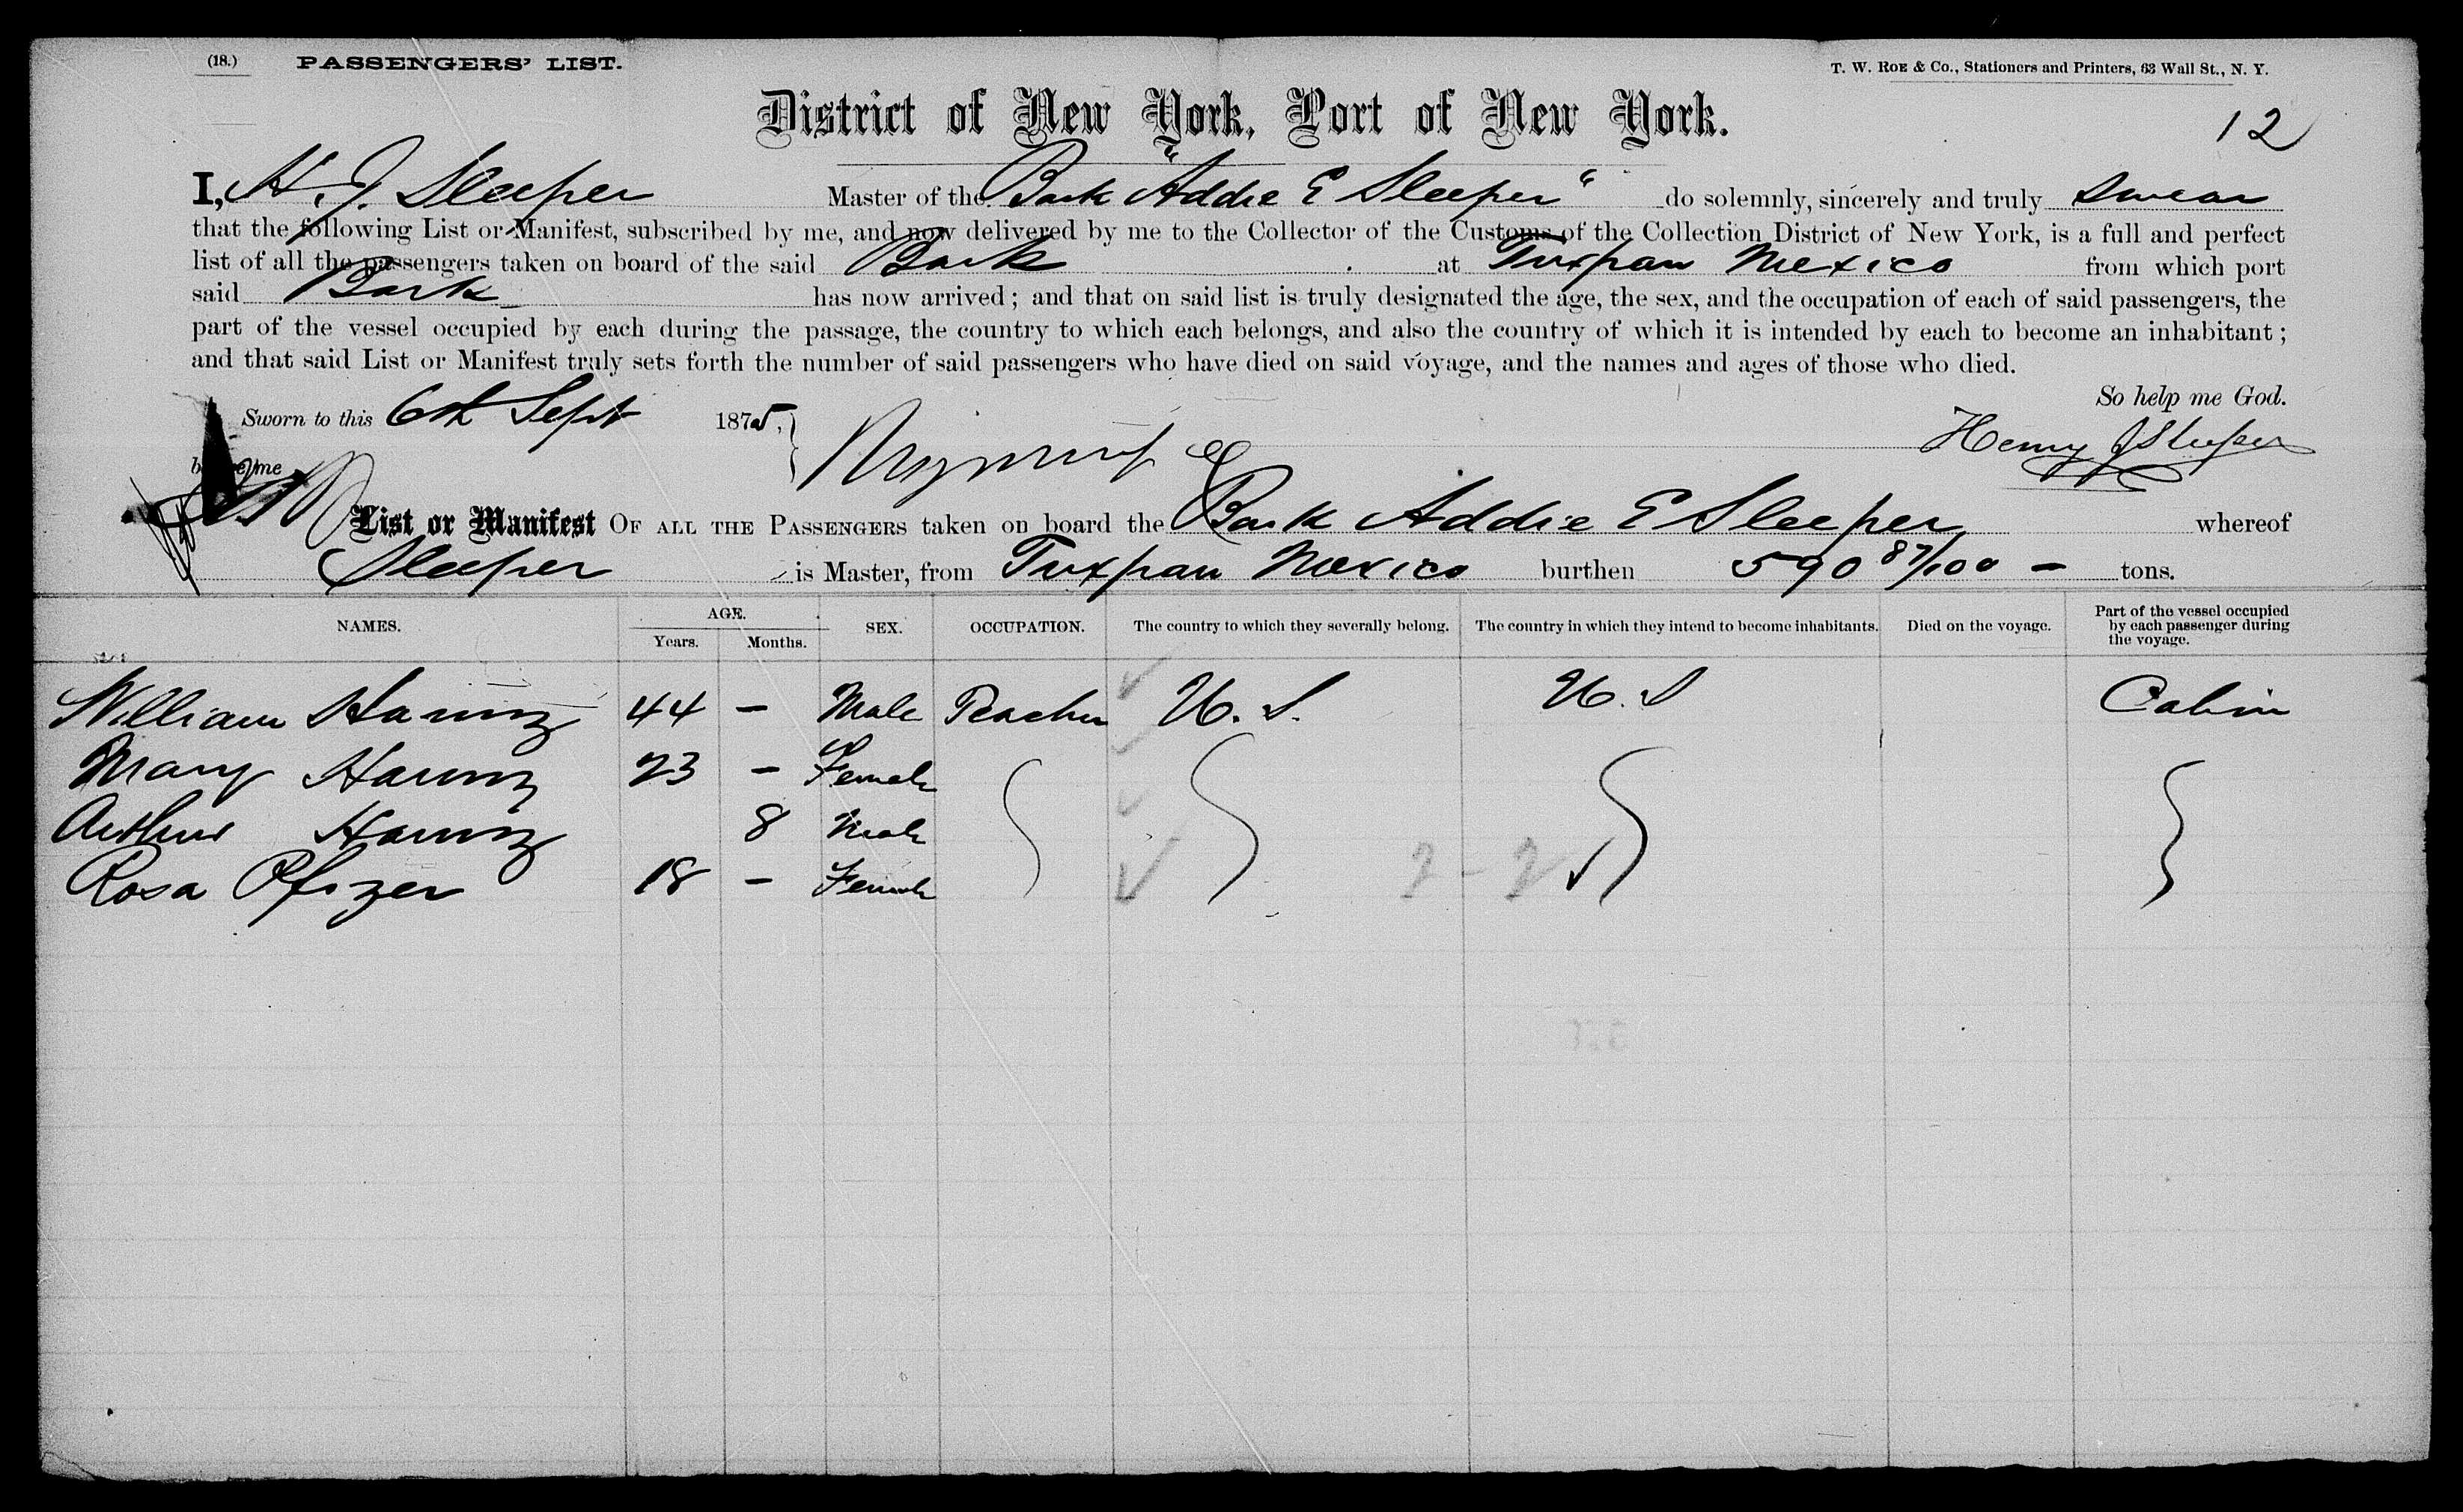 (18.) PASSENGERS' LIST.
T. W. ROE & Co., Stationers and Printers, 63 Wall St., N. Y.
District of New York, Port of New York.
12
I, H. J. Sleeper Master of the Bark "Addie E Sleeper" do solemnly, sincerely and truly swear
that the following List or Manifest, subscribed by me, and now delivered by me to the Collector of the Customs of the Collection District of New York, is a full and perfect
list of all the passengers taken on board of the said Bark at Tuxpan Mexico from which port
said Bark has now arrived; and that on said list is truly designated the age, the sex, and the occupation of each of said passengers, the
part of the vessel occupied by each during the passage, the country to which each belongs, and also the country of which it is intended by each to become an inhabitant;
and that said List or Manifest truly sets forth the number of said passengers who have died on said voyage, and the names and ages of those who died.
So help me God.
Sworn to this 6th Sept 1875,
Henry J Sleeper
before me
List or Manifest OF ALL THE PASSENGERS taken on board the Bark Addie E Sleeper whereof
Sleeper is Master, from Tuxpan Mexico burthen 590 87/100 - tons.
NAMES. AGE. Years. Months. SEX. OCCUPATION. The country to which they severally belong. The country in which they intend to become inhabitants. Died on the voyage. Part of the vessel occupied by each passenger during the voyage.
William 44 - Male Teacher U. S. U. S Cabin
Mary 23 - Female
Arthur 8 Male
Rosa Pfizer 18 - Female